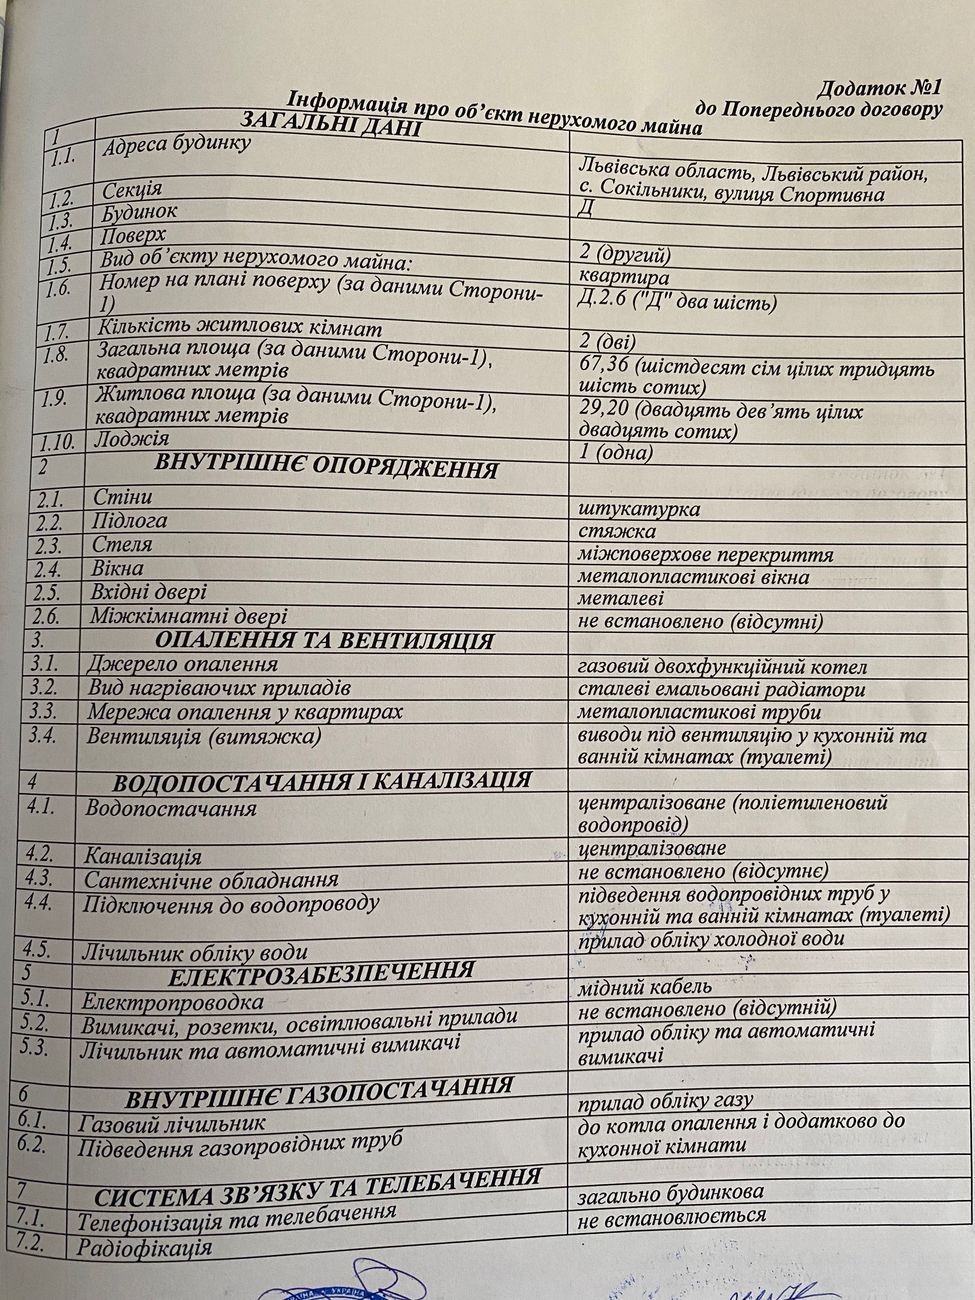 Додаток №1
до Попереднього договору
Інформація про об’єкт нерухомого майна
1 ЗАГАЛЬНІ ДАНІ
1.1. Адреса будинку Львівська область, Львівський район,
с. Сокільники, вулиця Спортивна
1.2. Секція Д
1.3. Будинок
1.4. Поверх 2 (другий)
1.5. Вид об’єкту нерухомого майна: квартира
1.6. Номер на плані поверху (за даними Сторони- Д.2.6 ("Д" два шість)
1)
1.7. Кількість житлових кімнат 2 (дві)
1.8. Загальна площа (за даними Сторони-1), 67,36 (шістдесят сім цілих тридцять
квадратних метрів шість сотих)
1.9. Житлова площа (за даними Сторони-1), 29,20 (двадцять дев’ять цілих
квадратних метрів двадцять сотих)
1.10. Лоджія 1 (одна)
2 ВНУТРІШНЄ ОПОРЯДЖЕННЯ
2.1. Стіни штукатурка
2.2. Підлога стяжка
2.3. Стеля міжповерхове перекриття
2.4. Вікна металопластикові вікна
2.5. Вхідні двері металеві
2.6. Міжкімнатні двері не встановлено (відсутні)
3. ОПАЛЕННЯ ТА ВЕНТИЛЯЦІЯ
3.1. Джерело опалення газовий двохфункційний котел
3.2. Вид нагріваючих приладів сталеві емальовані радіатори
3.3. Мережа опалення у квартирах металопластикові труби
3.4. Вентиляція (витяжка) виводи під вентиляцію у кухонній та
ванній кімнатах (туалеті)
4 ВОДОПОСТАЧАННЯ І КАНАЛІЗАЦІЯ
4.1. Водопостачання централізоване (поліетиленовий
водопровід)
4.2. Каналізація централізоване
4.3. Сантехнічне обладнання не встановлено (відсутнє)
4.4. Підключення до водопроводу підведення водопровідних труб у
кухонній та ванній кімнатах (туалеті)
4.5. Лічильник обліку води прилад обліку холодної води
5 ЕЛЕКТРОЗАБЕЗПЕЧЕННЯ
5.1. Електропроводка мідний кабель
5.2. Вимикачі, розетки, освітлювальні прилади не встановлено (відсутній)
5.3. Лічильник та автоматичні вимикачі прилад обліку та автоматичні
вимикачі
6 ВНУТРІШНЄ ГАЗОПОСТАЧАННЯ
6.1. Газовий лічильник прилад обліку газу
6.2. Підведення газопровідних труб до котла опалення і додатково до
кухонної кімнати
7 СИСТЕМА ЗВ’ЯЗКУ ТА ТЕЛЕБАЧЕННЯ
7.1. Телефонізація та телебачення загально будинкова
7.2. Радіофікація не встановлюється
УКРАЇНА